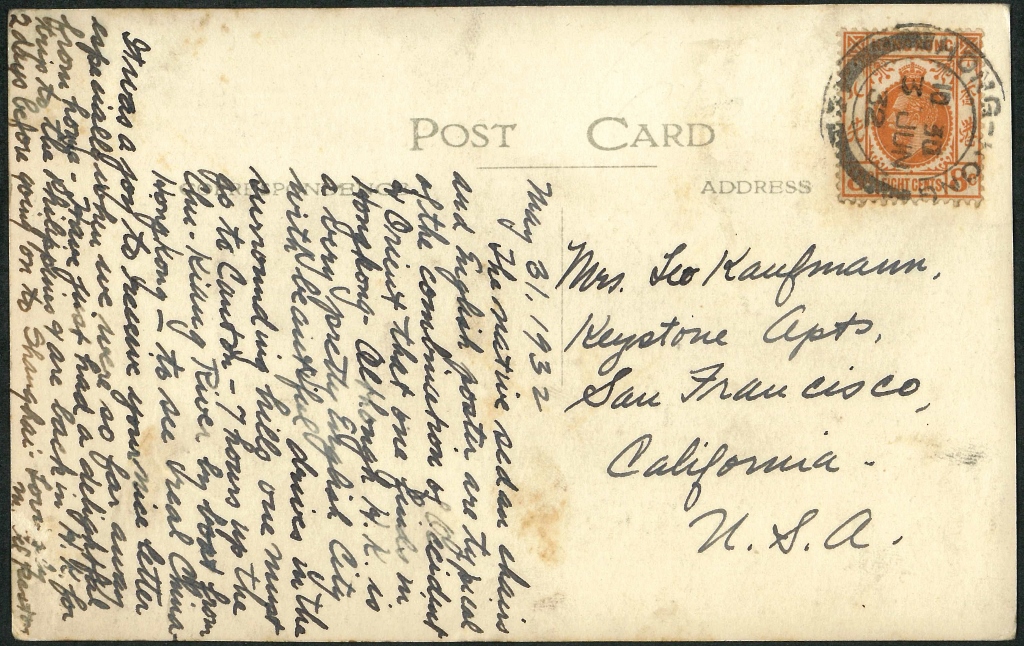 POST CARD
CORRESPONDENCE
ADDRESS
HONG-KONG
10 30
3 JUN
32
EIGHT CENTS
May 31, 1932
The native sedan chairs
and English poster are typical
of the combination of Occident
& Orient that one finds in
Hongkong. Although H.K. is
a very pretty English City
with beautiful drives in the
surrounding hills one must
go to Canton - 7 hours up the
Chu-Kiang River by boat from
Hongkong - to see real China
It was a joy to receive your nice letter
especially when we were so far away
from home - Have just had a delightful
trip to the Philippines & are back in H.K. for
2 days before going on to Shanghai. Love
Mrs. Leo Kaufmann,
Keystone Apts,
San Francisco,
California -
U. S. A.